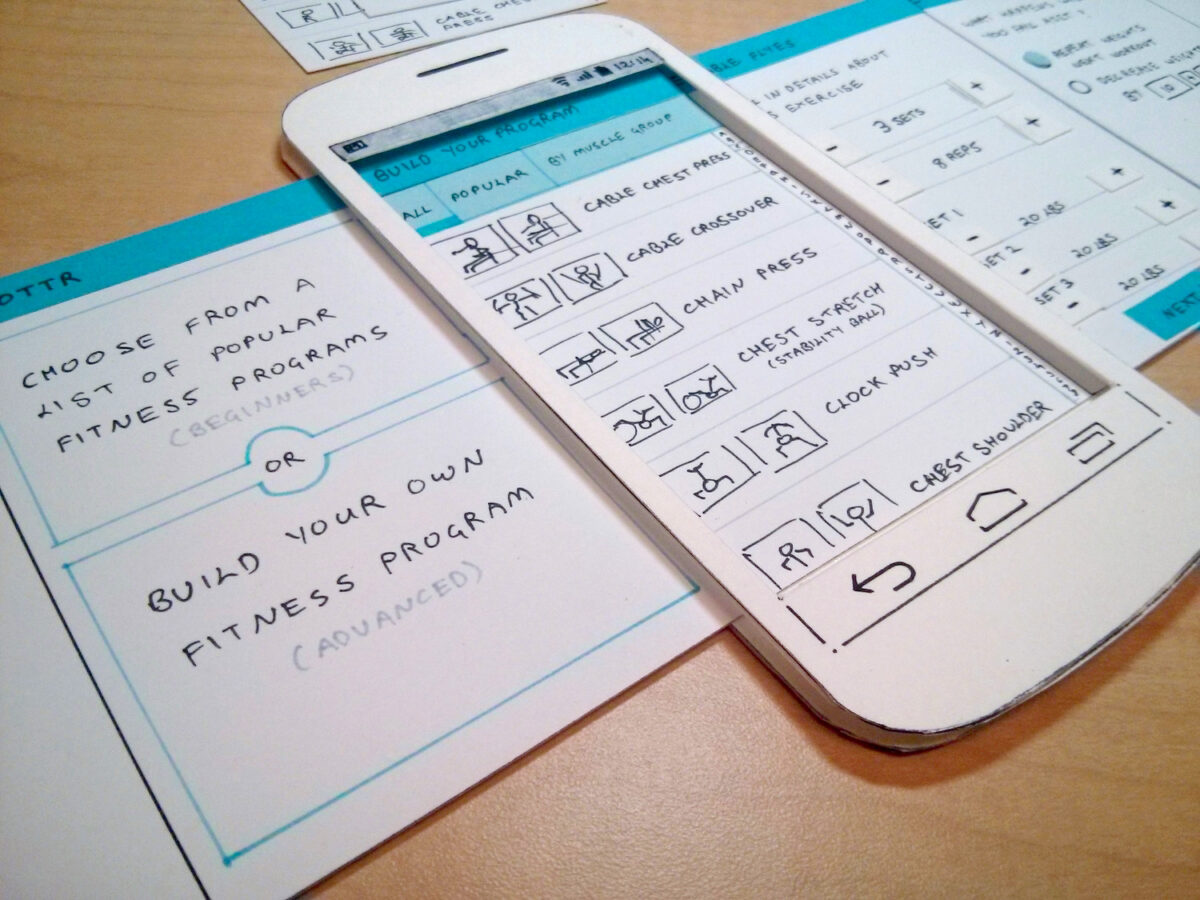 CABLE CHEST
PRESS
OTTR
CHOOSE FROM A
LIST OF POPULAR
FITNESS PROGRAMS
(BEGINNERS)
OR
BUILD YOUR OWN
FITNESS PROGRAM
(ADVANCED)
12:14
BUILD YOUR PROGRAM
ALL
POPULAR
BY MUSCLE GROUP
CABLE CHEST PRESS
CABLE CROSSOVER
CHAIN PRESS
CHEST STRETCH
(STABILITY BALL)
CLOCK PUSH
CHEST SHOULDER
FLYES
IN DETAILS ABOUT
EXERCISE
- 3 SETS +
- 8 REPS +
SET 1 - 20 LBS +
SET 2 - 20 LBS +
SET 3 - 20 LBS
NEXT
WHAT HAPPENS
YOU
REPEAT WEIGHTS
NEXT WORKOUT
DECREASE
BY 10